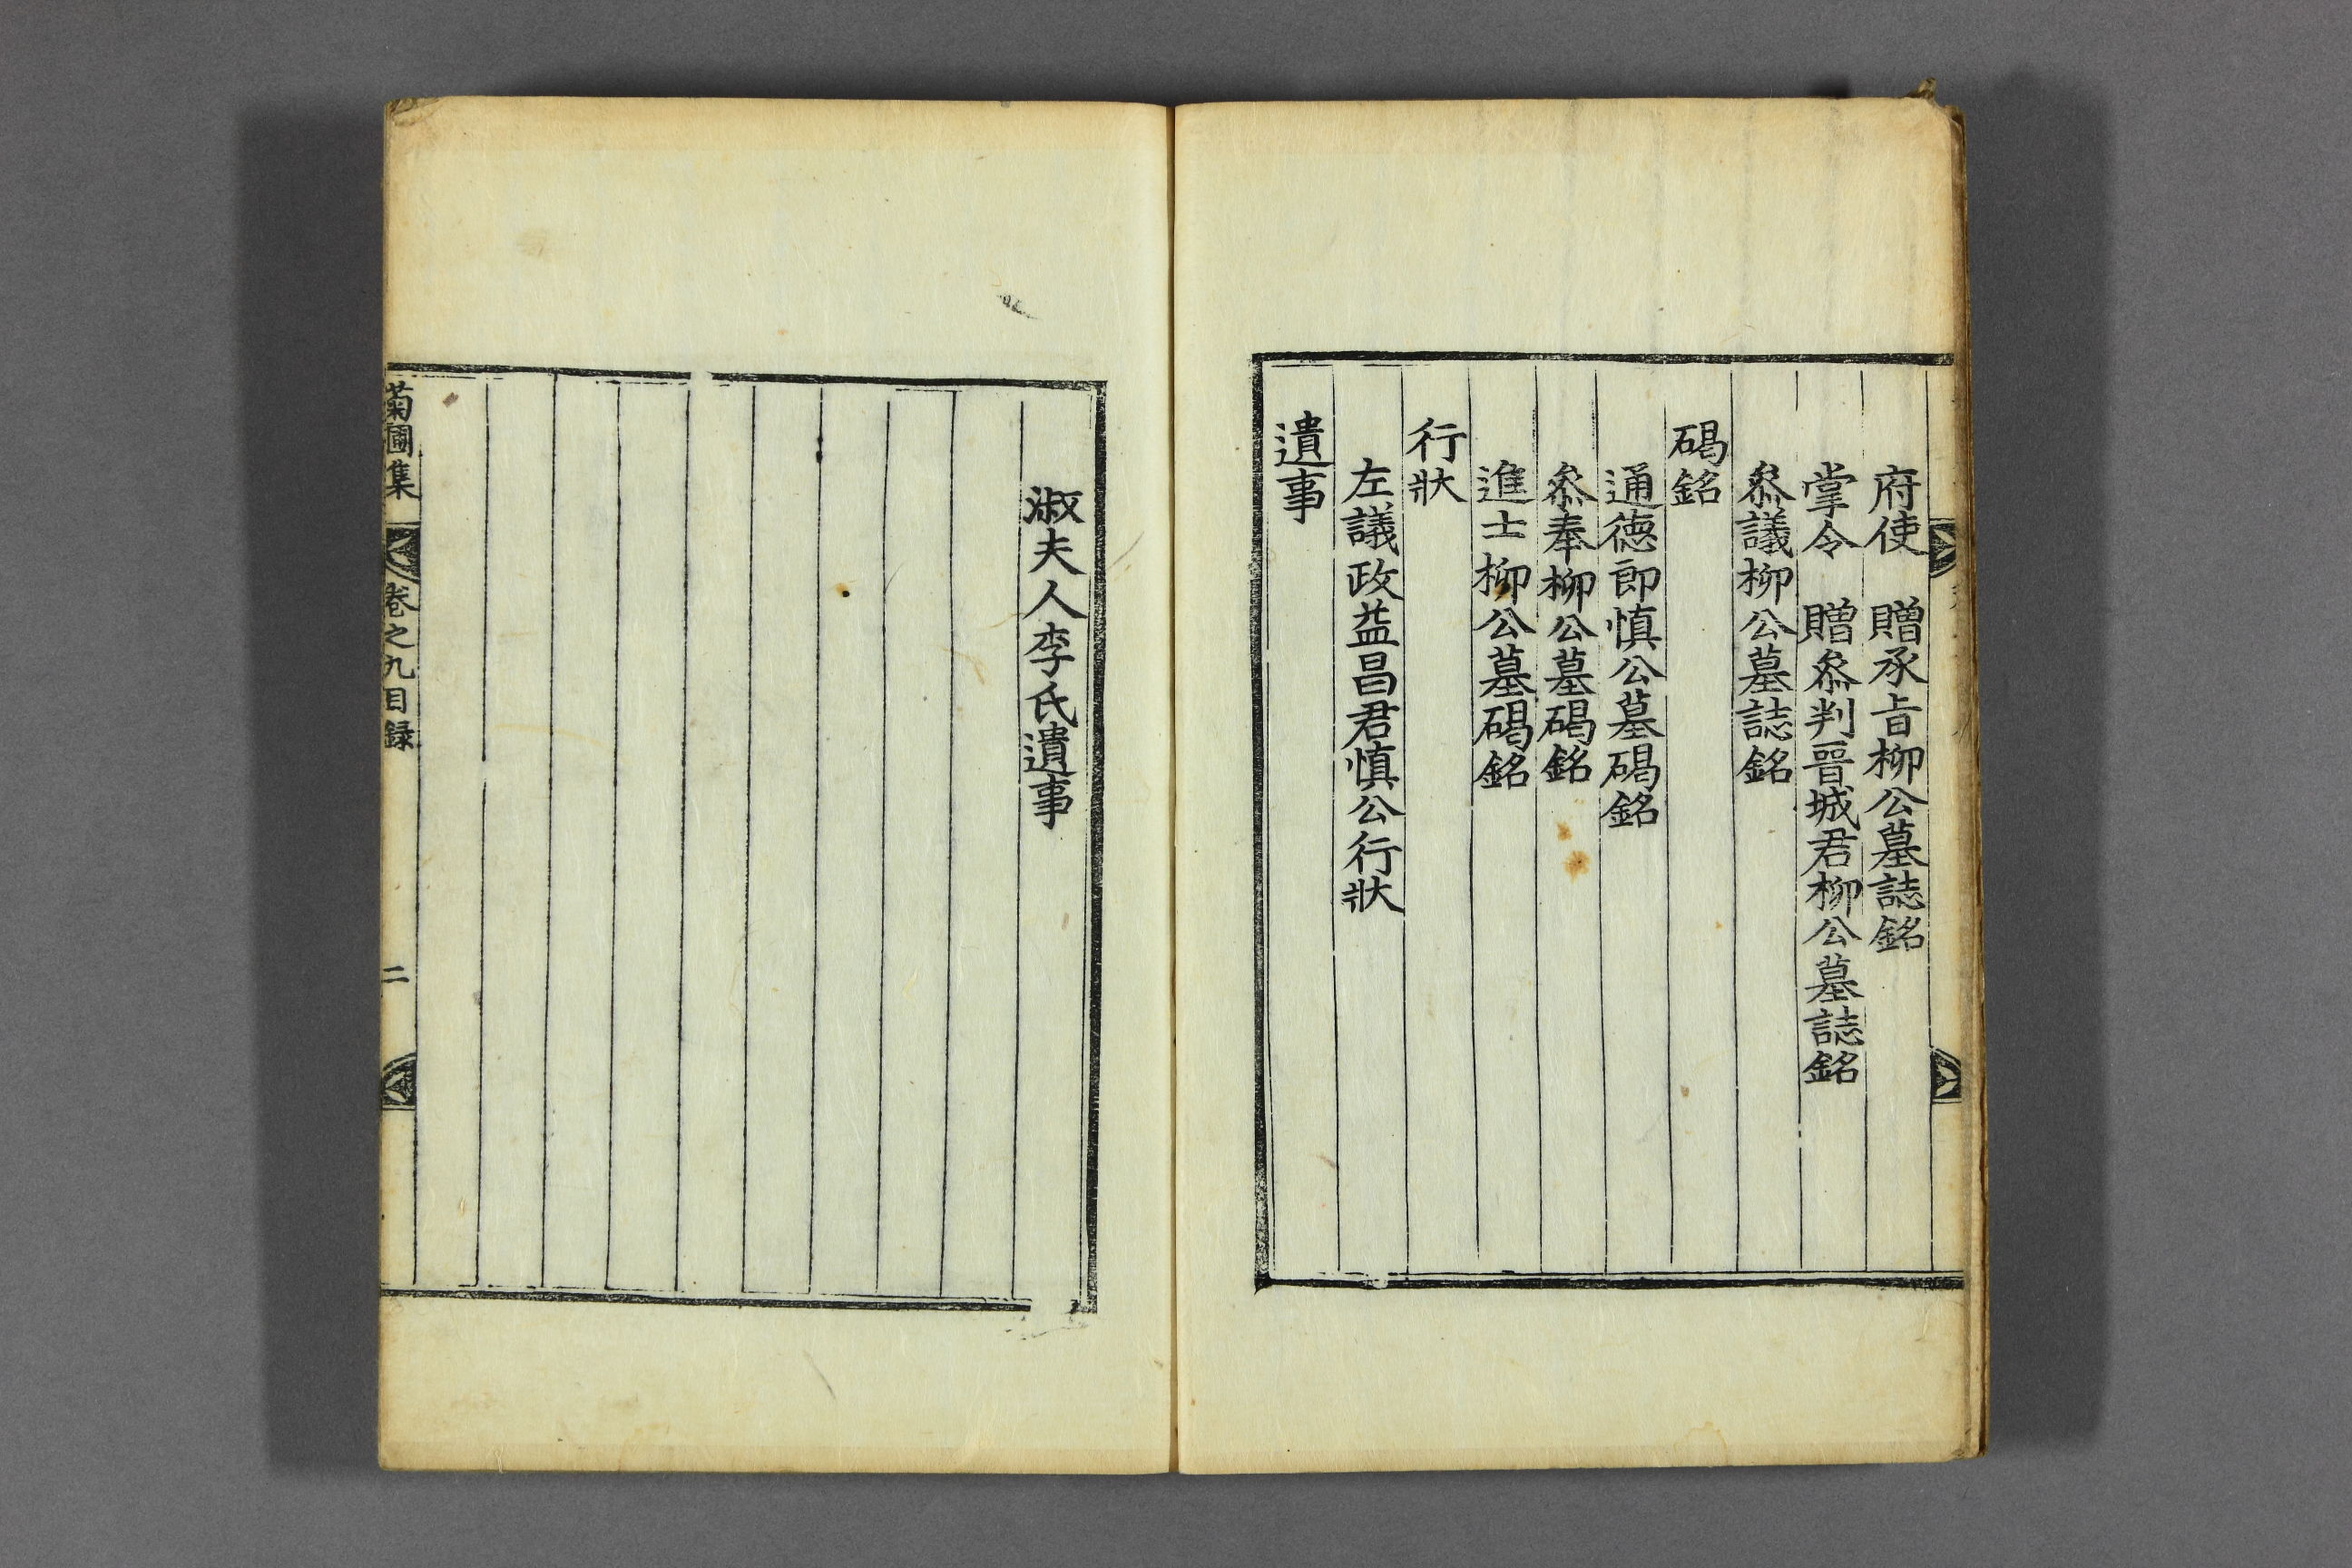 府使　贈承旨柳公墓誌銘
掌令　贈叅判晉城君柳公墓誌銘
叅議柳公墓誌銘
碣銘
通德郎慎公墓碣銘
叅奉柳公墓碣銘
進士柳公墓碣銘
行狀
左議政益昌君慎公行狀
遺事
淑夫人李氏遺事
菊圃集
卷之九目録
二